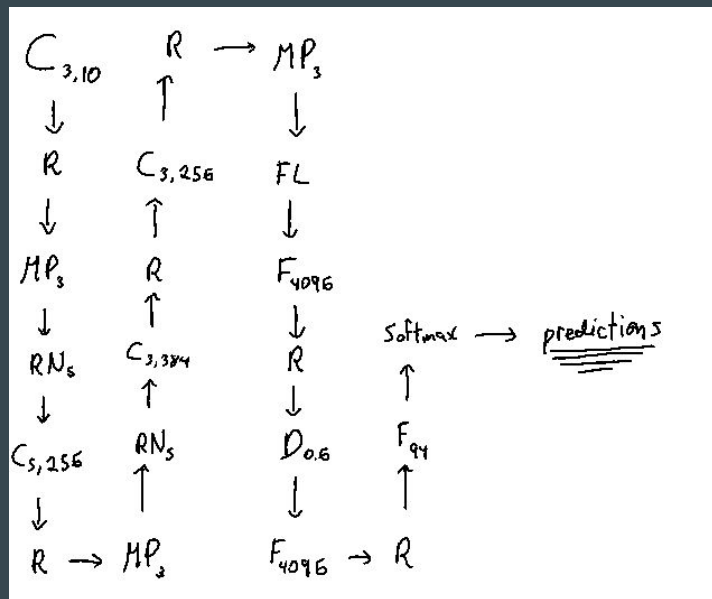 C3,10
↓
R
↓
MP3
↓
RN5
↓
C5,256
↓
R → MP3
↑
RN5
↑
C3,384
↑
R
↑
C3,256
↑
R → MP3
↓
FL
↓
F4096
↓
R
↓
D0.6
↓
F4096 → R
↑
F94
↑
Softmax → predictions